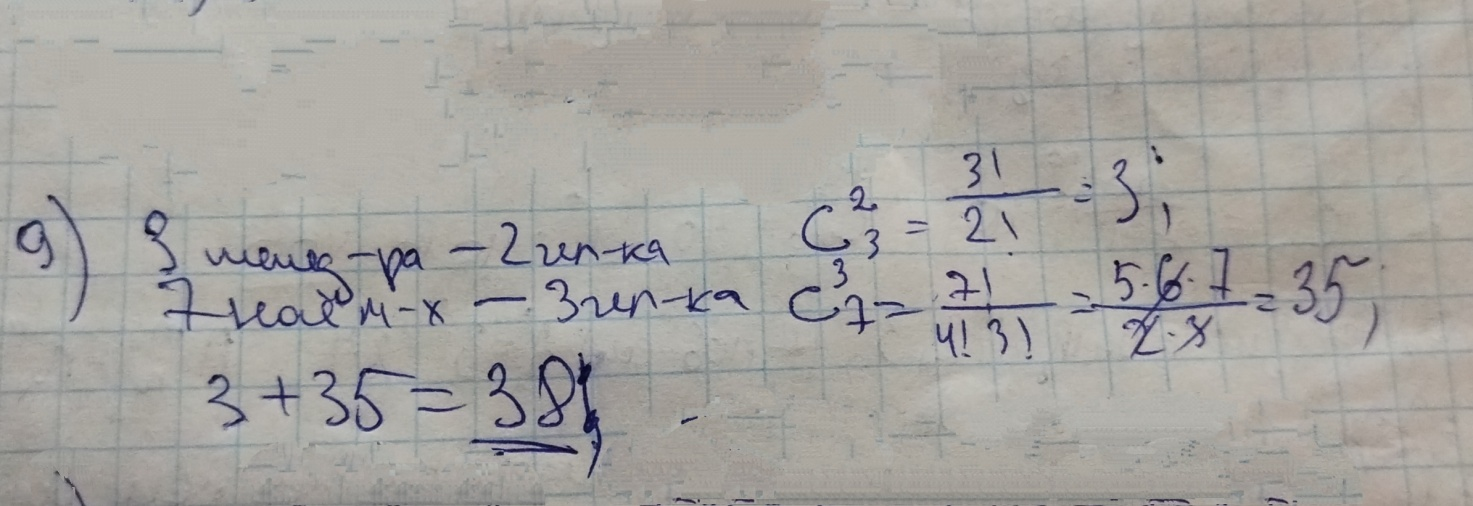 9) 3 менед-ра – 2 чел-ка C₃² = 3!/2! = 3;
7 наём-х – 3 чел-ка C₇³ = 7!/4!3! = 5·6·7/2·3 = 35;
3 + 35 = 38;